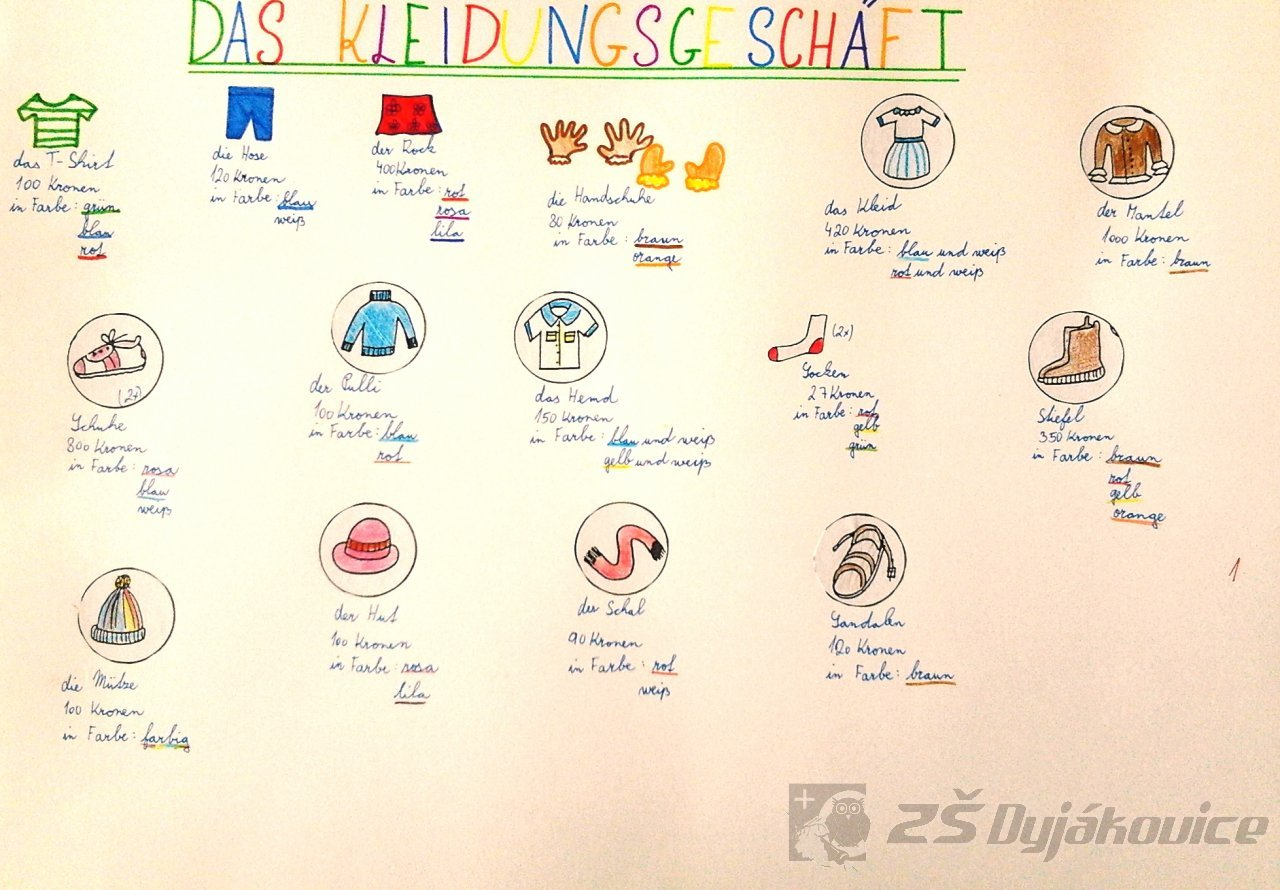 DAS KLEIDUNGSGESCHÄFT
das T-Shirt
100 Kronen
in Farbe: grün
blau
rot
die Hose
120 Kronen
in Farbe: blau
weiß
der Rock
400 Kronen
in Farbe: rot
rosa
lila
die Handschuhe
80 Kronen
in Farbe: braun
orange
das Kleid
420 Kronen
in Farbe: blau und weiß
rot und weiß
der Mantel
1000 Kronen
in Farbe: braun
(2x)
Schuhe
800 Kronen
in Farbe: rosa
blau
weiß
der Pulli
100 Kronen
in Farbe: blau
rot
das Hemd
150 Kronen
in Farbe: blau und weiß
gelb und weiß
(2x)
Socken
27 Kronen
in Farbe: rot
gelb
grün
Stiefel
350 Kronen
in Farbe: braun
rot
gelb
orange
die Mütze
100 Kronen
in Farbe: farbig
der Hut
100 Kronen
in Farbe: rosa
lila
der Schal
90 Kronen
in Farbe: rot
weiß
Sandalen
120 Kronen
in Farbe: braun
1
ZŠ Dyjákovice